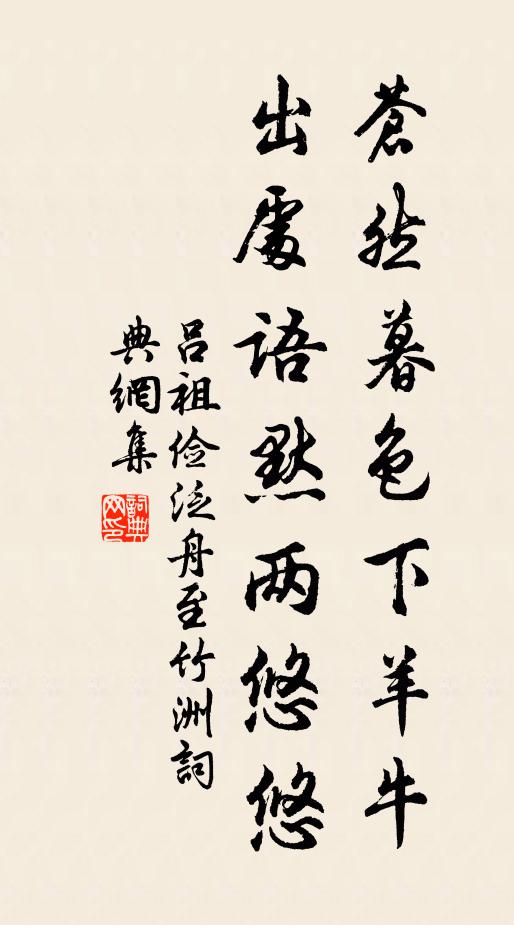 蒼然暮色下羊牛
出處語默两悠悠
吕祖俭泛舟至竹洲詞
典網集
詞典網印